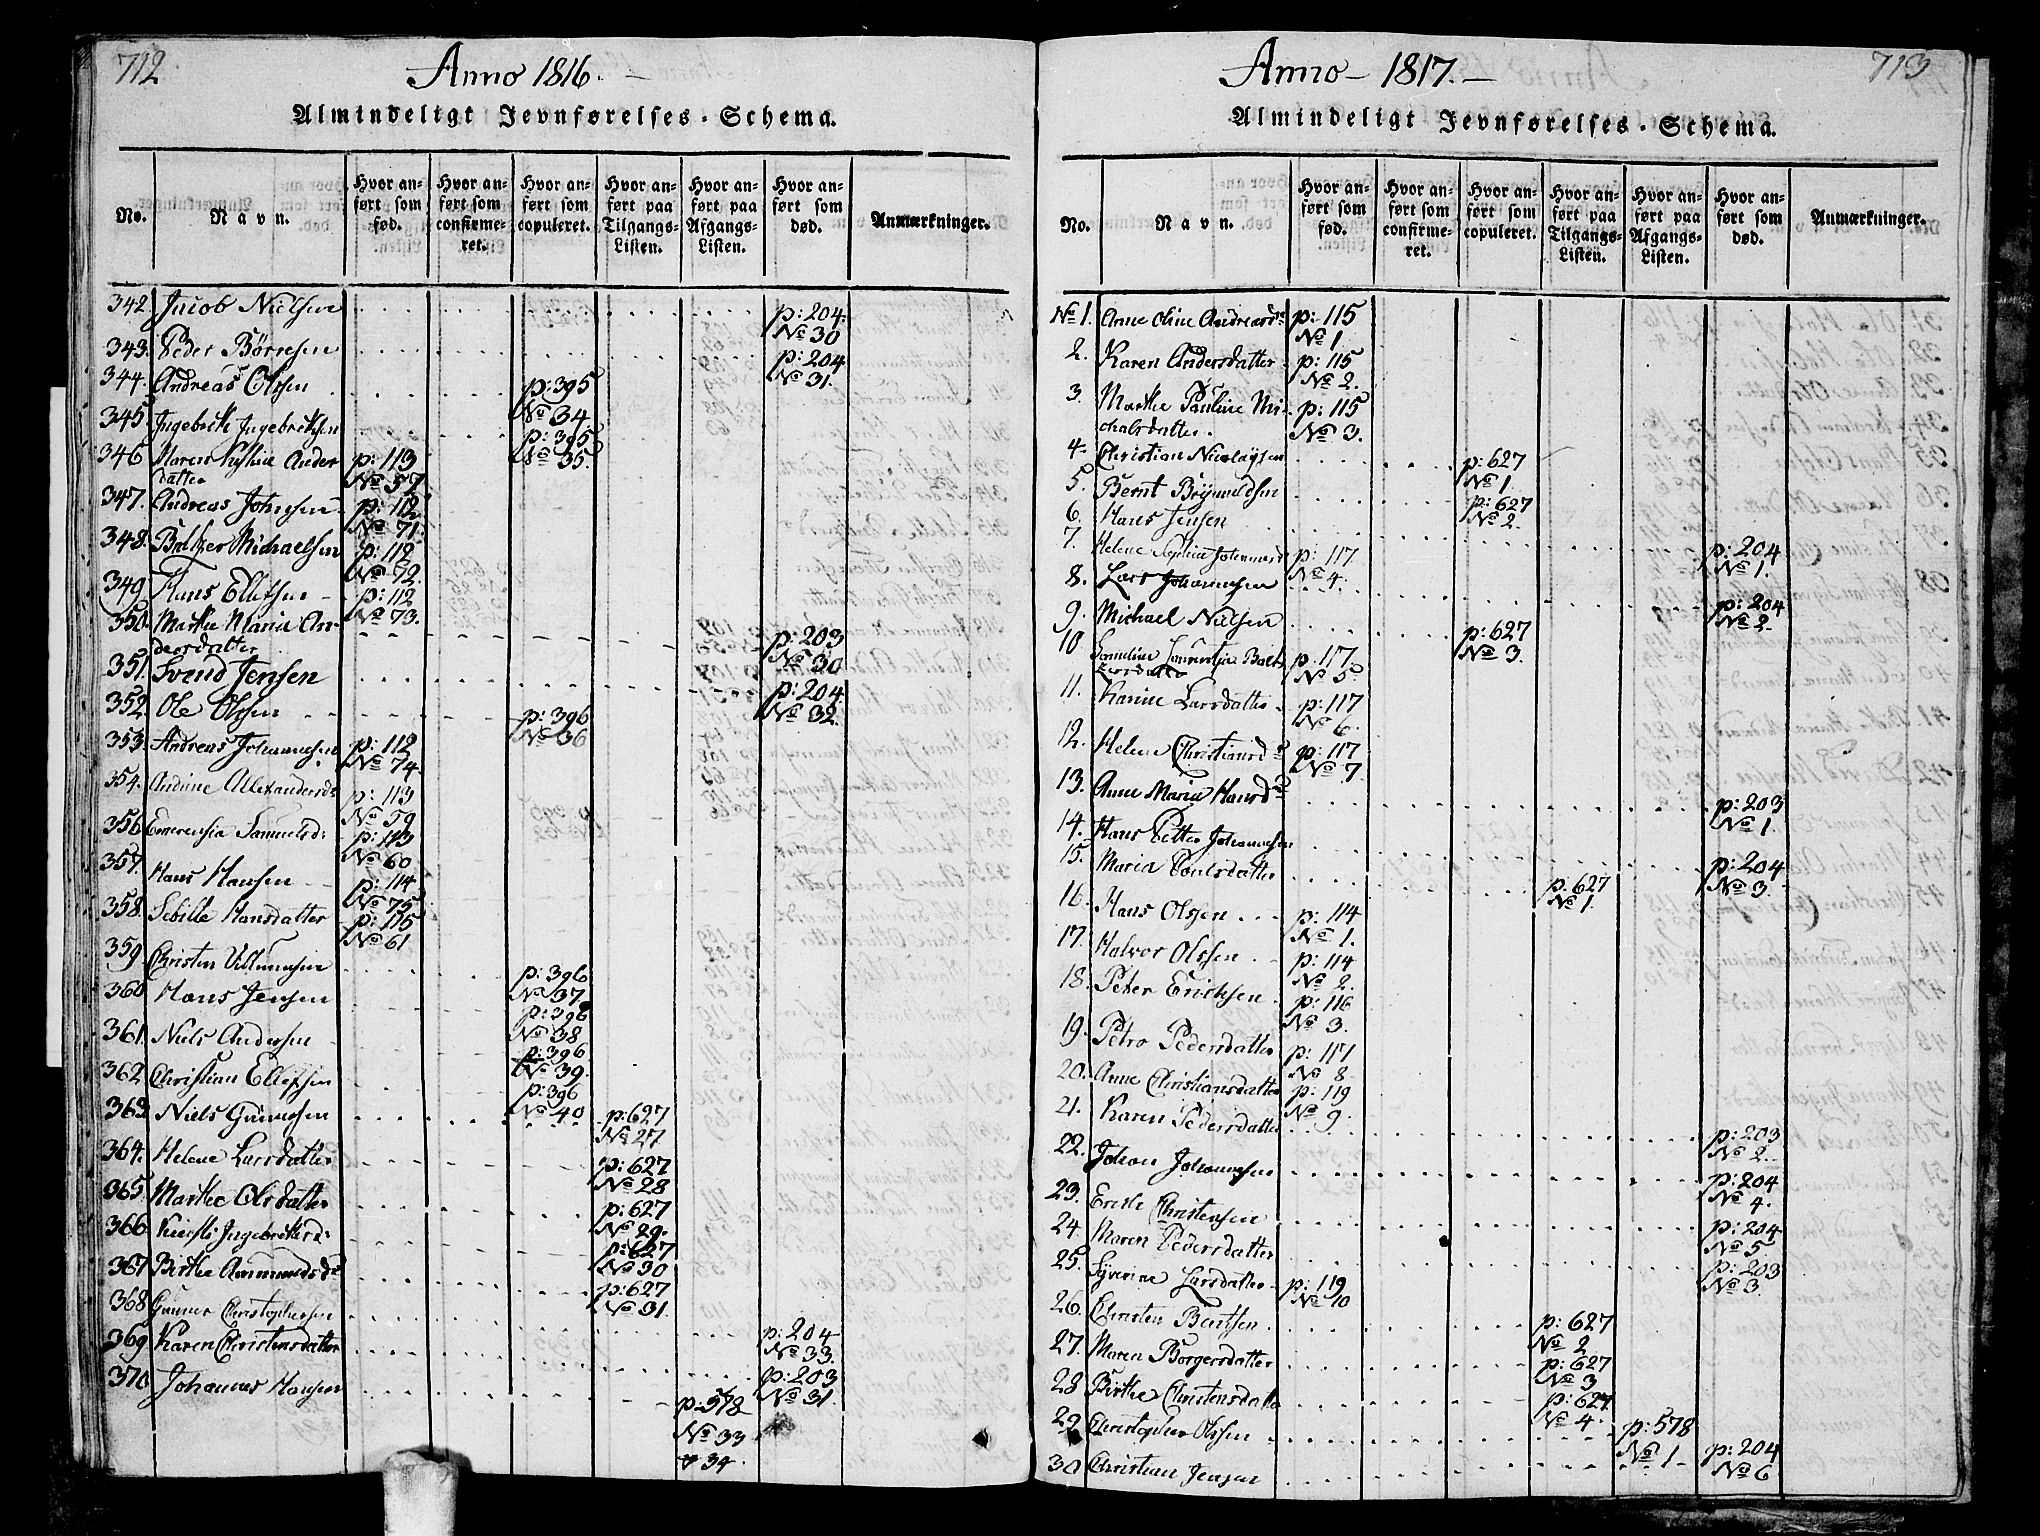 712
Anno 1816.
Almindeligt Jevnførelses-Schema.
No.
Navn.
Hvor anført som fød.
Hvor anført som confirmeret.
Hvor anført som copuleret.
Hvor anført paa Tilgangs-Listen.
Hvor anført paa Afgangs-Listen.
Hvor anført som død.
Anmærkninger.
342 Jacob Nielsen p: 204. No 30
343. Peder Börresen p: 204 No 31.
344. Andreas Olssen p: 395 No 34
345. Ingebrikt Ingebriktsen p: 395 No 35.
346 Maren Kistine Anders
datter p: 113 No 57
347. Andreas Johnsen p: 112 No 71.
348. Baltzer Michaelsen p: 112 No 72.
349. Hans Ellefsen p: 112 No 73.
350. Marthe Maria An-
dersdatter p: 203 No 30
351. Svend Jensen p: 204 No 32.
352. Ole Olssen p: 396 No 36
353. Andreas Johannesen p: 112 No 74.
354. Andrine Allexandersd: p: 113 No 59
356 Emerensia Samuelsd: p: 113 No 60
357. Hans Hansen p: 114 No 75
358. Sebille Hansdatter p: 115 No 61
359. Christen Villumsen p: 396 No 37
360 Hans Jensen p: 396 No 38
361. Niels Andersen p: 396 No 39.
362 Christian Ellefsen p: 396 No 40
363 Niels Gunnersen p: 627 No 27
364. Helene Larsdatter p: 627 No 28
365. Marthe Olsdatter p: 627 No 29.
366 Ingebrektsd: p: 627 No 30
367 Birthe Ammundsdr p: 627 No 31.
368 Gunner Christophersen p: 204 No 33.
369 Karen Christensdatter p: 203 No 31.
370 Johannes Hansen p: 578 No 33 & 34.
713
Anno - 1817.
Almindeligt Jevnførelses-Schema.
No.
Navn.
Hvor anført som fød.
Hvor anført som confirmeret.
Hvor anført som copuleret.
Hvor anført paa Tilgangs-Listen.
Hvor anført paa Afgangs-Listen.
Hvor anført som død.
Anmærkninger.
No 1. Anne Oline Andreasdr p: 115 No 1.
2. Karen Andersdatter p: 115 No 2.
3. Marthe Pauline Mi-
chalsdatter. p: 115 No 3.
4. Christian Nicolaysen p: 627 No 1
5. Bernt Brynnildsen p: 627 No 2.
6. Hans Jensen p: 204 No 1.
7. Helene Sophia Johannesd p: 117 No 4.
8. Lars Johannesen p: 204 No 2.
9. Michael Nielsen p: 627 No 3.
10 Laurentia Balt-
zersdatter p: 117. No 5
11. Karine Larsdatter p: 117 No 6.
12. Helene Christiansdr p: 117 No 7
13. Anne Maria Hansdr p: 203 No 1.
14. Hans Petter Johannesen p: 204 No 3.
15. Maria Poulsdatter p: 627 No 1.
16. Hans Olsen p: 114 No 1.
17. Halvor Olssen p: 114 No 2.
18. Peter Erichsen p: 116 No 3.
19. Petro Pedersdatter p: 117 No 8
20. Anne Christiansdatter p: 119 No 9.
21. Karen Pedersdatter p: 203 No 2.
22. Johan Johannesen p: 204 No 4.
23. Erich Christensen p: 204 No 5
24. Maren Pedersdatter p: 203 No 3.
25. Syverine Larsdatter p: 119 No 10
26. Christen Bentsen p: 627 No 2
27. Maren Borgersdatter p: 627 No 3
28 Birthe Christensdatter p: 627 No 4.
29 Christopher Olssen p: 578 No 1
30 Christian Jensen p: 204 No 6